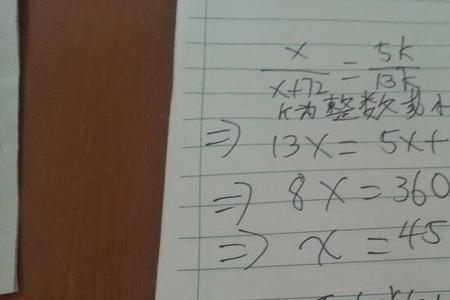 x/(x+72) = 5k/13k
k为整数
⇒ 13x = 5x+
⇒ 8x = 360
⇒ x = 45